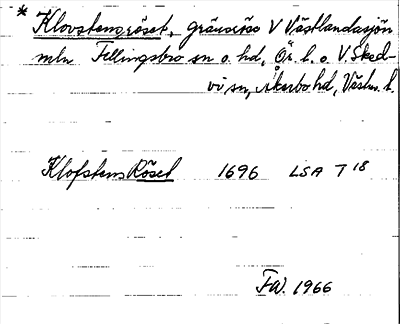 * Klovstensröset, gränsröse V Västlandasjön
mln Fellingsbro sn o. hd, Ör. l. o V. Sked-
vi sn, Åkerbo hd, Västm. l.
Klofstens Röset 1696 LSA T 18
FW. 1966